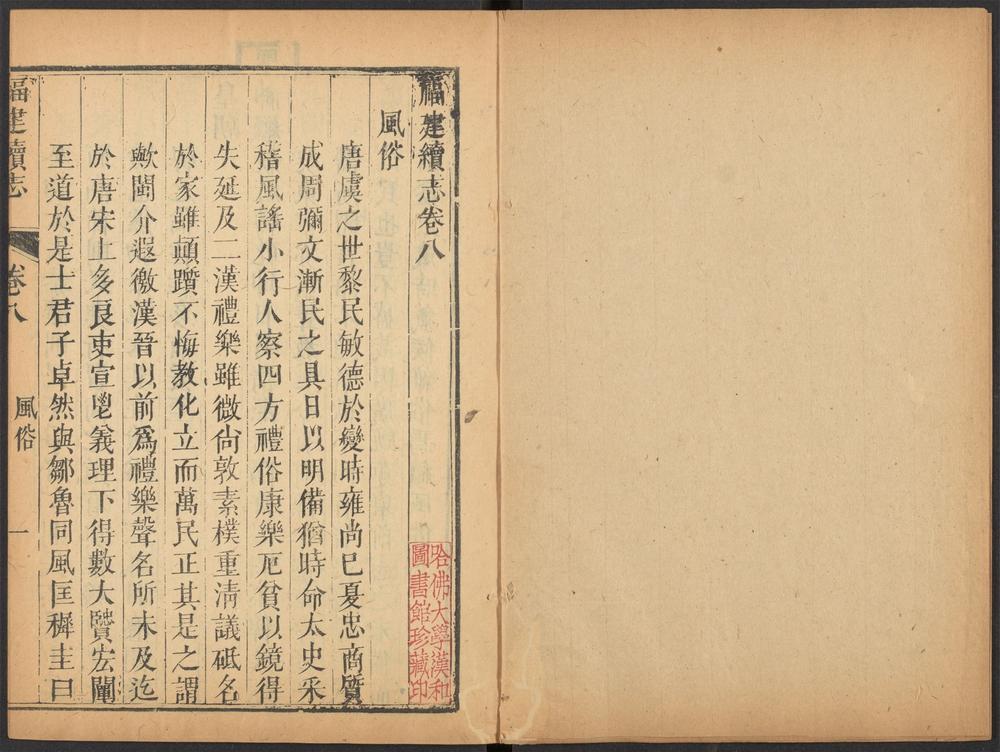 福建續志卷八
風俗
唐虞之世黎民敏德於變時雍尚巳夏忠商質
成周彌文漸民之具日以明備猶時命太史采
稽風謠小行人察四方禮俗康樂厄貧以鏡得
失延及二漢禮樂雖微尚敦素樸重清議砥名
於家雖顛躓不悔教化立而萬民正其是之謂
歟閩介遐徼漢晉以前爲禮樂聲名所未及迄
於唐宋上多良吏宣鬯義理下得數大賢宏闡
至道於是士君子卓然與鄒魯同風匡穉圭曰
福建續志
卷八
風俗
一
哈佛大學漢和
圖書館珍藏印